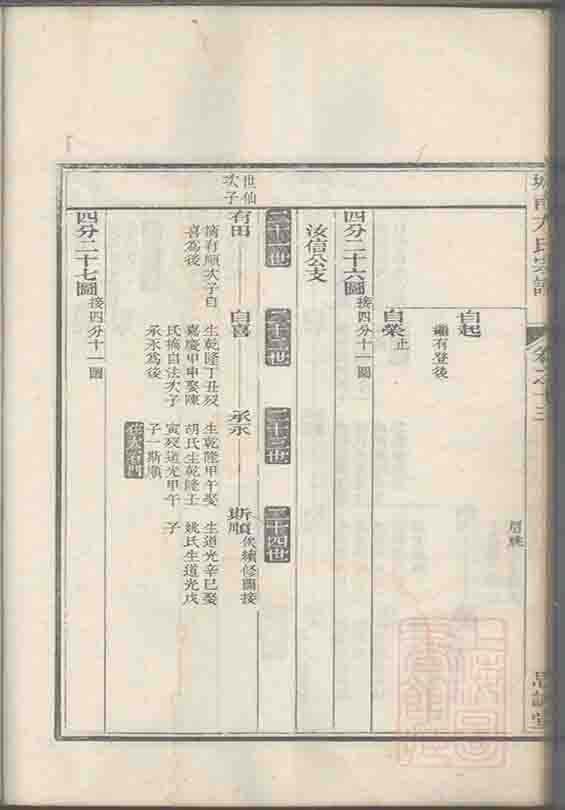 自起
繼有登後
自榮止
四分二十六圖接四分十一圖
汝信公支
二十一世
二十二世
二十三世
二十四世
世仙
次子
有田
摘有順次子自
喜為後
自喜
生乾隆丁丑歿
嘉慶甲申娶陳
氏摘自法次子
承永為後
承永
生乾隆甲午娶
胡氏生乾隆壬
寅歿道光甲午
子一斯順
斯順俟續修圖接
生道光辛巳娶
姚氏生道光戊
子
四分二十七圖接四分十一圖